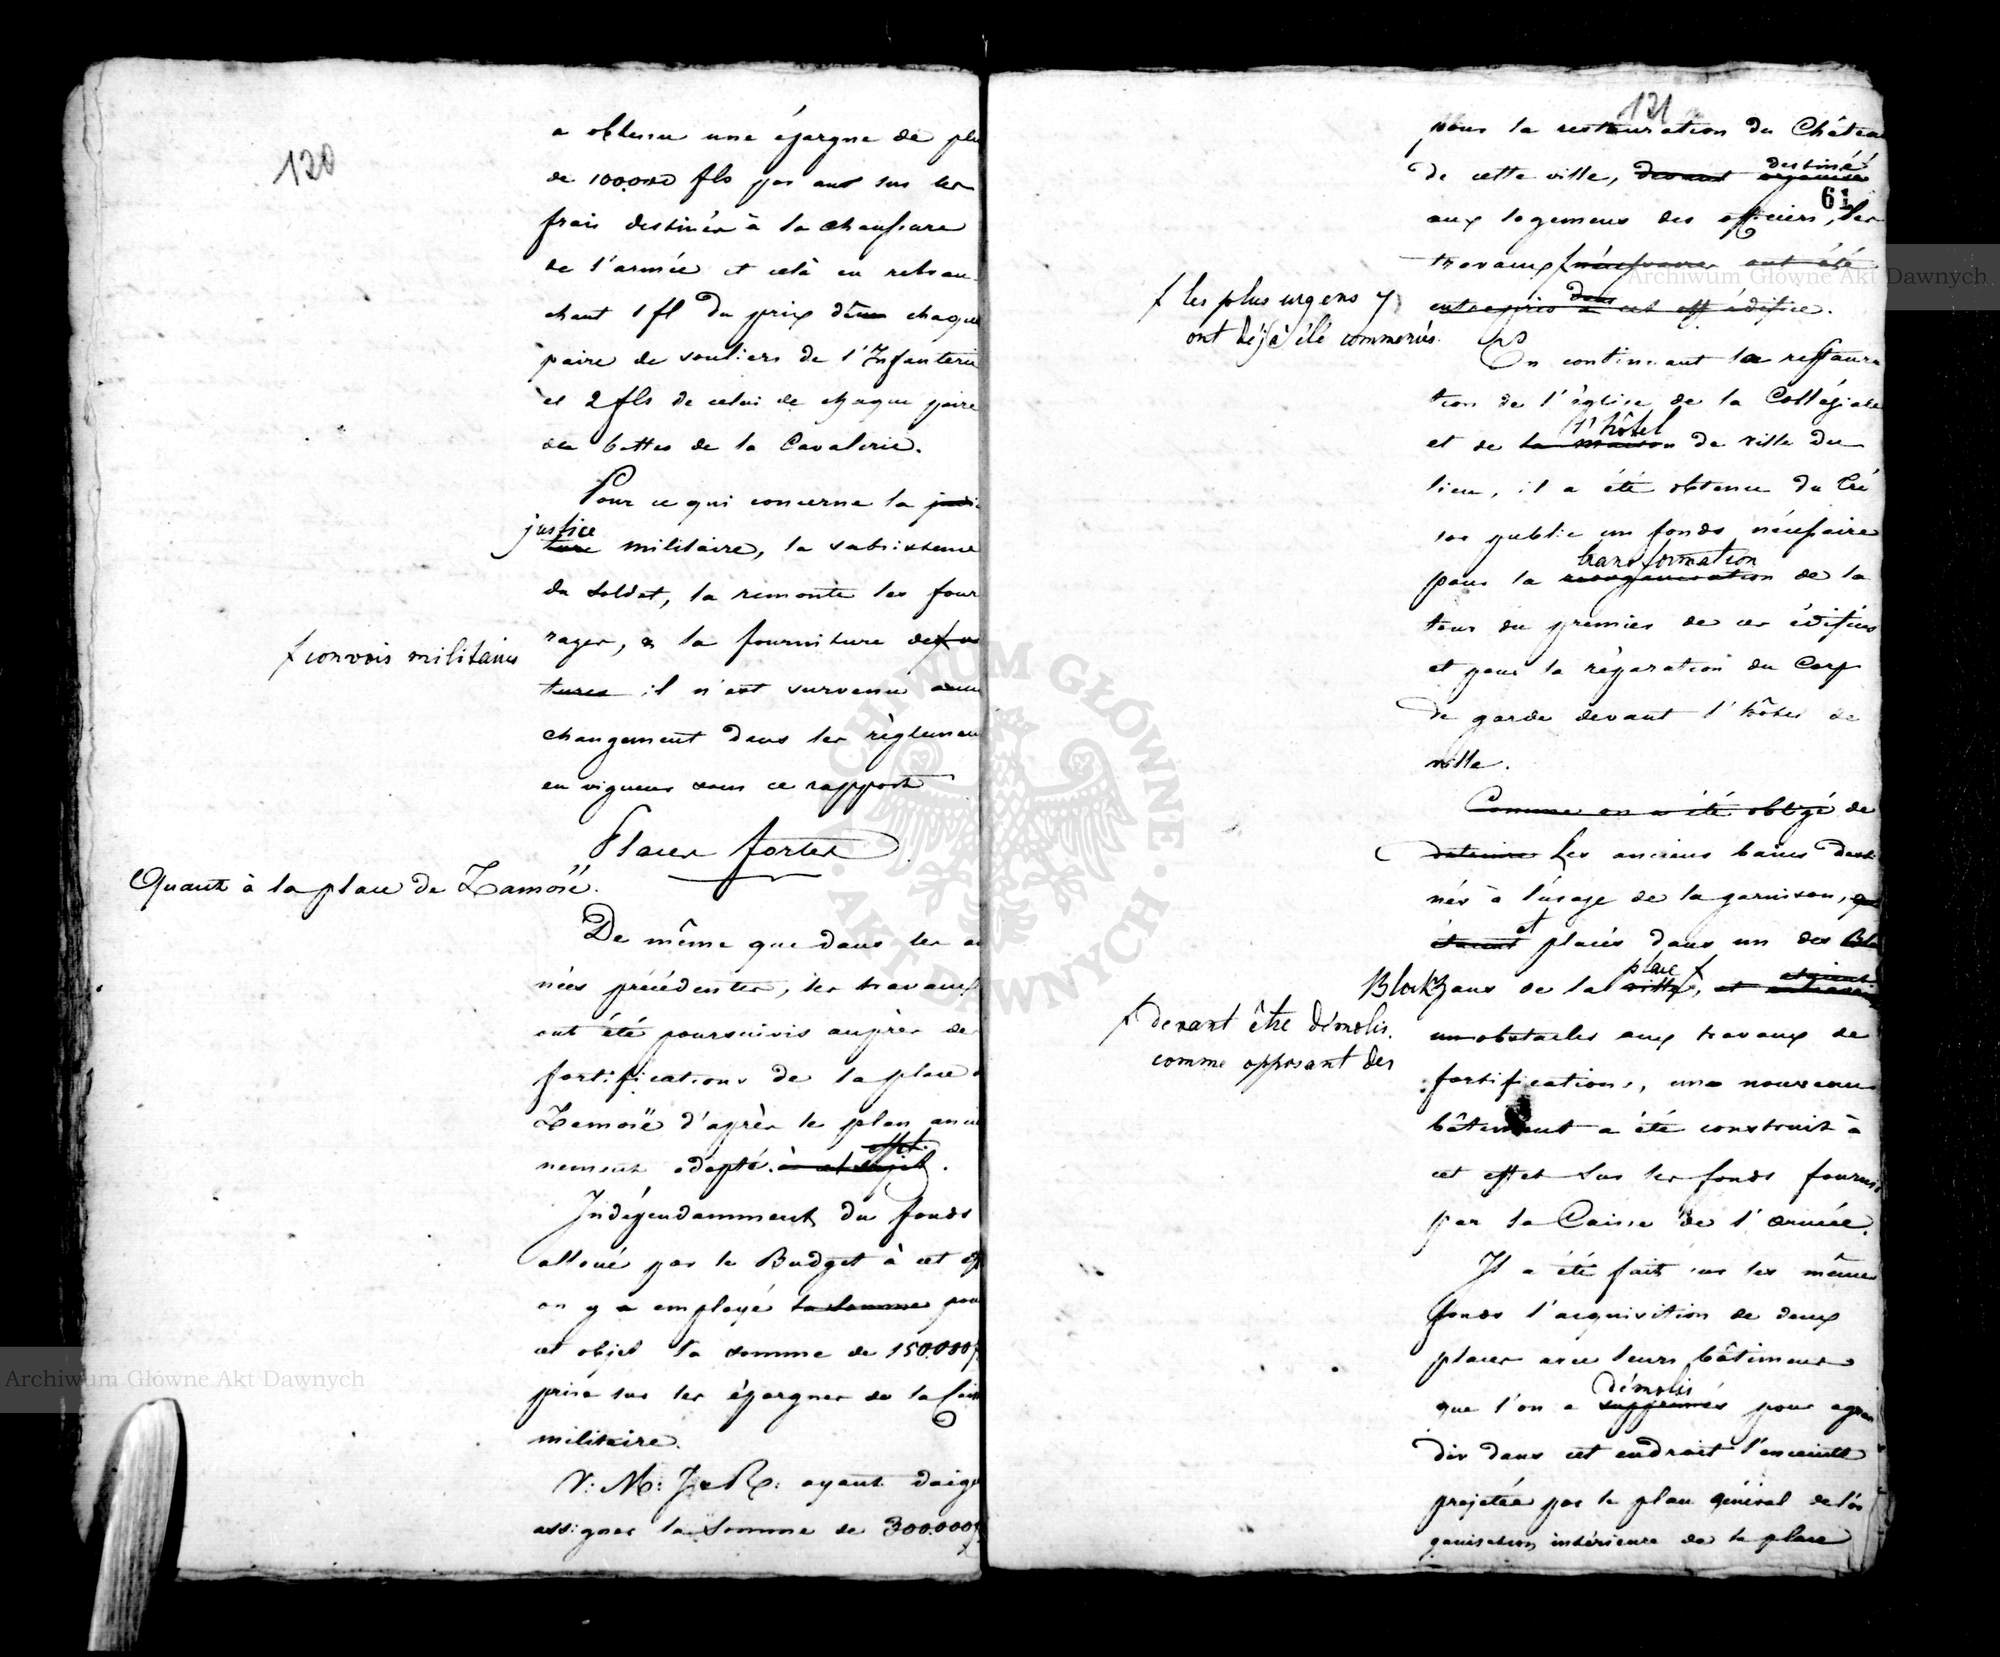 120
a obtenu une épargne de plu
de 100.000 fls par ans sur les
frais destinés à la chaussure
de l'armée et celà en retran
chant 1 fl du prix d'une chaque
paire de souliers de l'Infanterie
et 2 fls de celui de chaque paire
des bottes de la Cavalerie.
Pour ce qui concerne la judi
justice
ture militaire, la subsistence
du soldat, la remonte les four
rages, & la fourniture des
convois militaires
tures il n'est survenu aucun
changement dans les règlemens
en vigueur sous ce rapport
Places fortes
Quant à la place de Zamość.
De même que dans les an
nées précédentes, les travaux
ont été poursuivis auprès de
fortifications de la place
Zamość d'après le plan ancien
effet
nement adopté à cet sujet.
Indépendamment du fonds
alloué par le Budget à cet
on y a employé la somme pour
cet objet la somme de 150.000
prise sur les épargnes de la Caisse
militaire.
V: M: J. & R: ayant daig
assigner la somme de 300.000
121
61
pour la restauration du Château
destiné
de cette ville, devant organisé
aux logemens des officiers, les
travaux nécessaires ont été
les plus urgens y
ont déjà été commencés.
dans
entrepris à cet eff édifice.
En continuant la restaura
tion de l'église de la Collégiale
l'hôtel
et de la maison de ville du
lieu, il a été obtenu du Tré
sor public un fonds nécessaire
transformation
pour la réorganisation de la
tour du premier de ces édifices
et pour la réparation du Corps
de garde devant l'hôtel de
ville.
Comme on a été obligé de
détruire Les anciens bains desti
nés à l'usage de la garnison, qui
et
étaient placés dans un des Blo
place
Blockhaus de la ville, et
devant être démolis.
comme opposant des
un obstacles aux travaux de
fortifications, une nouveau
bâtiment a été construit à
cet effet sur les fonds fournis
par la Caisse de l'armée.
Il a été fait sur les mêmes
fonds l'acquisition de deux
places avec leurs bâtimens
démolis
que l'on a supprimés pour agran
dir dans cet endroit l'enceinte
projetée par le plan général de l'or
ganisation intérieure de la place
Archiwum Główne Akt Dawnych
Archiwum Główne Akt Dawnych
ARCHIWUM GŁÓWNE AKT DAWNYCH